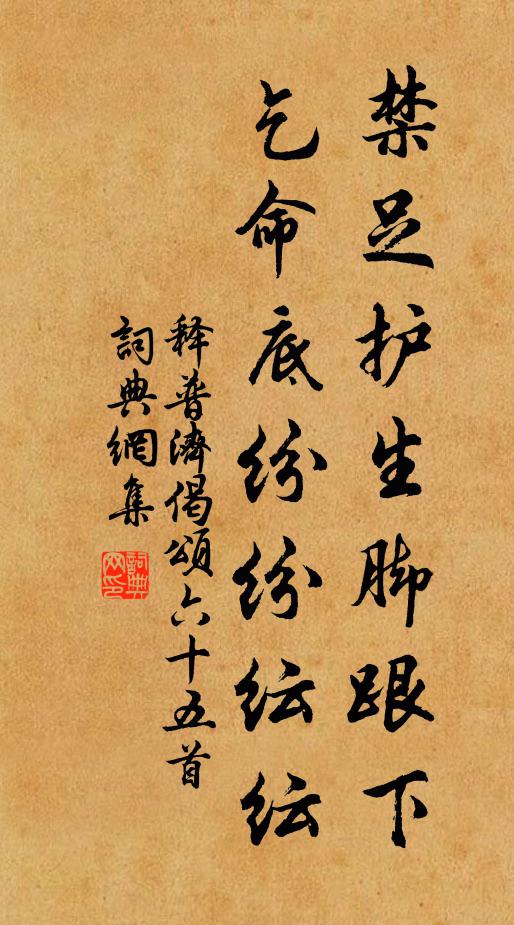 禁足护生脚跟下
乞命底纷纷纭纭
释普濟偈頌六十五首
詞典網集
詞典网印